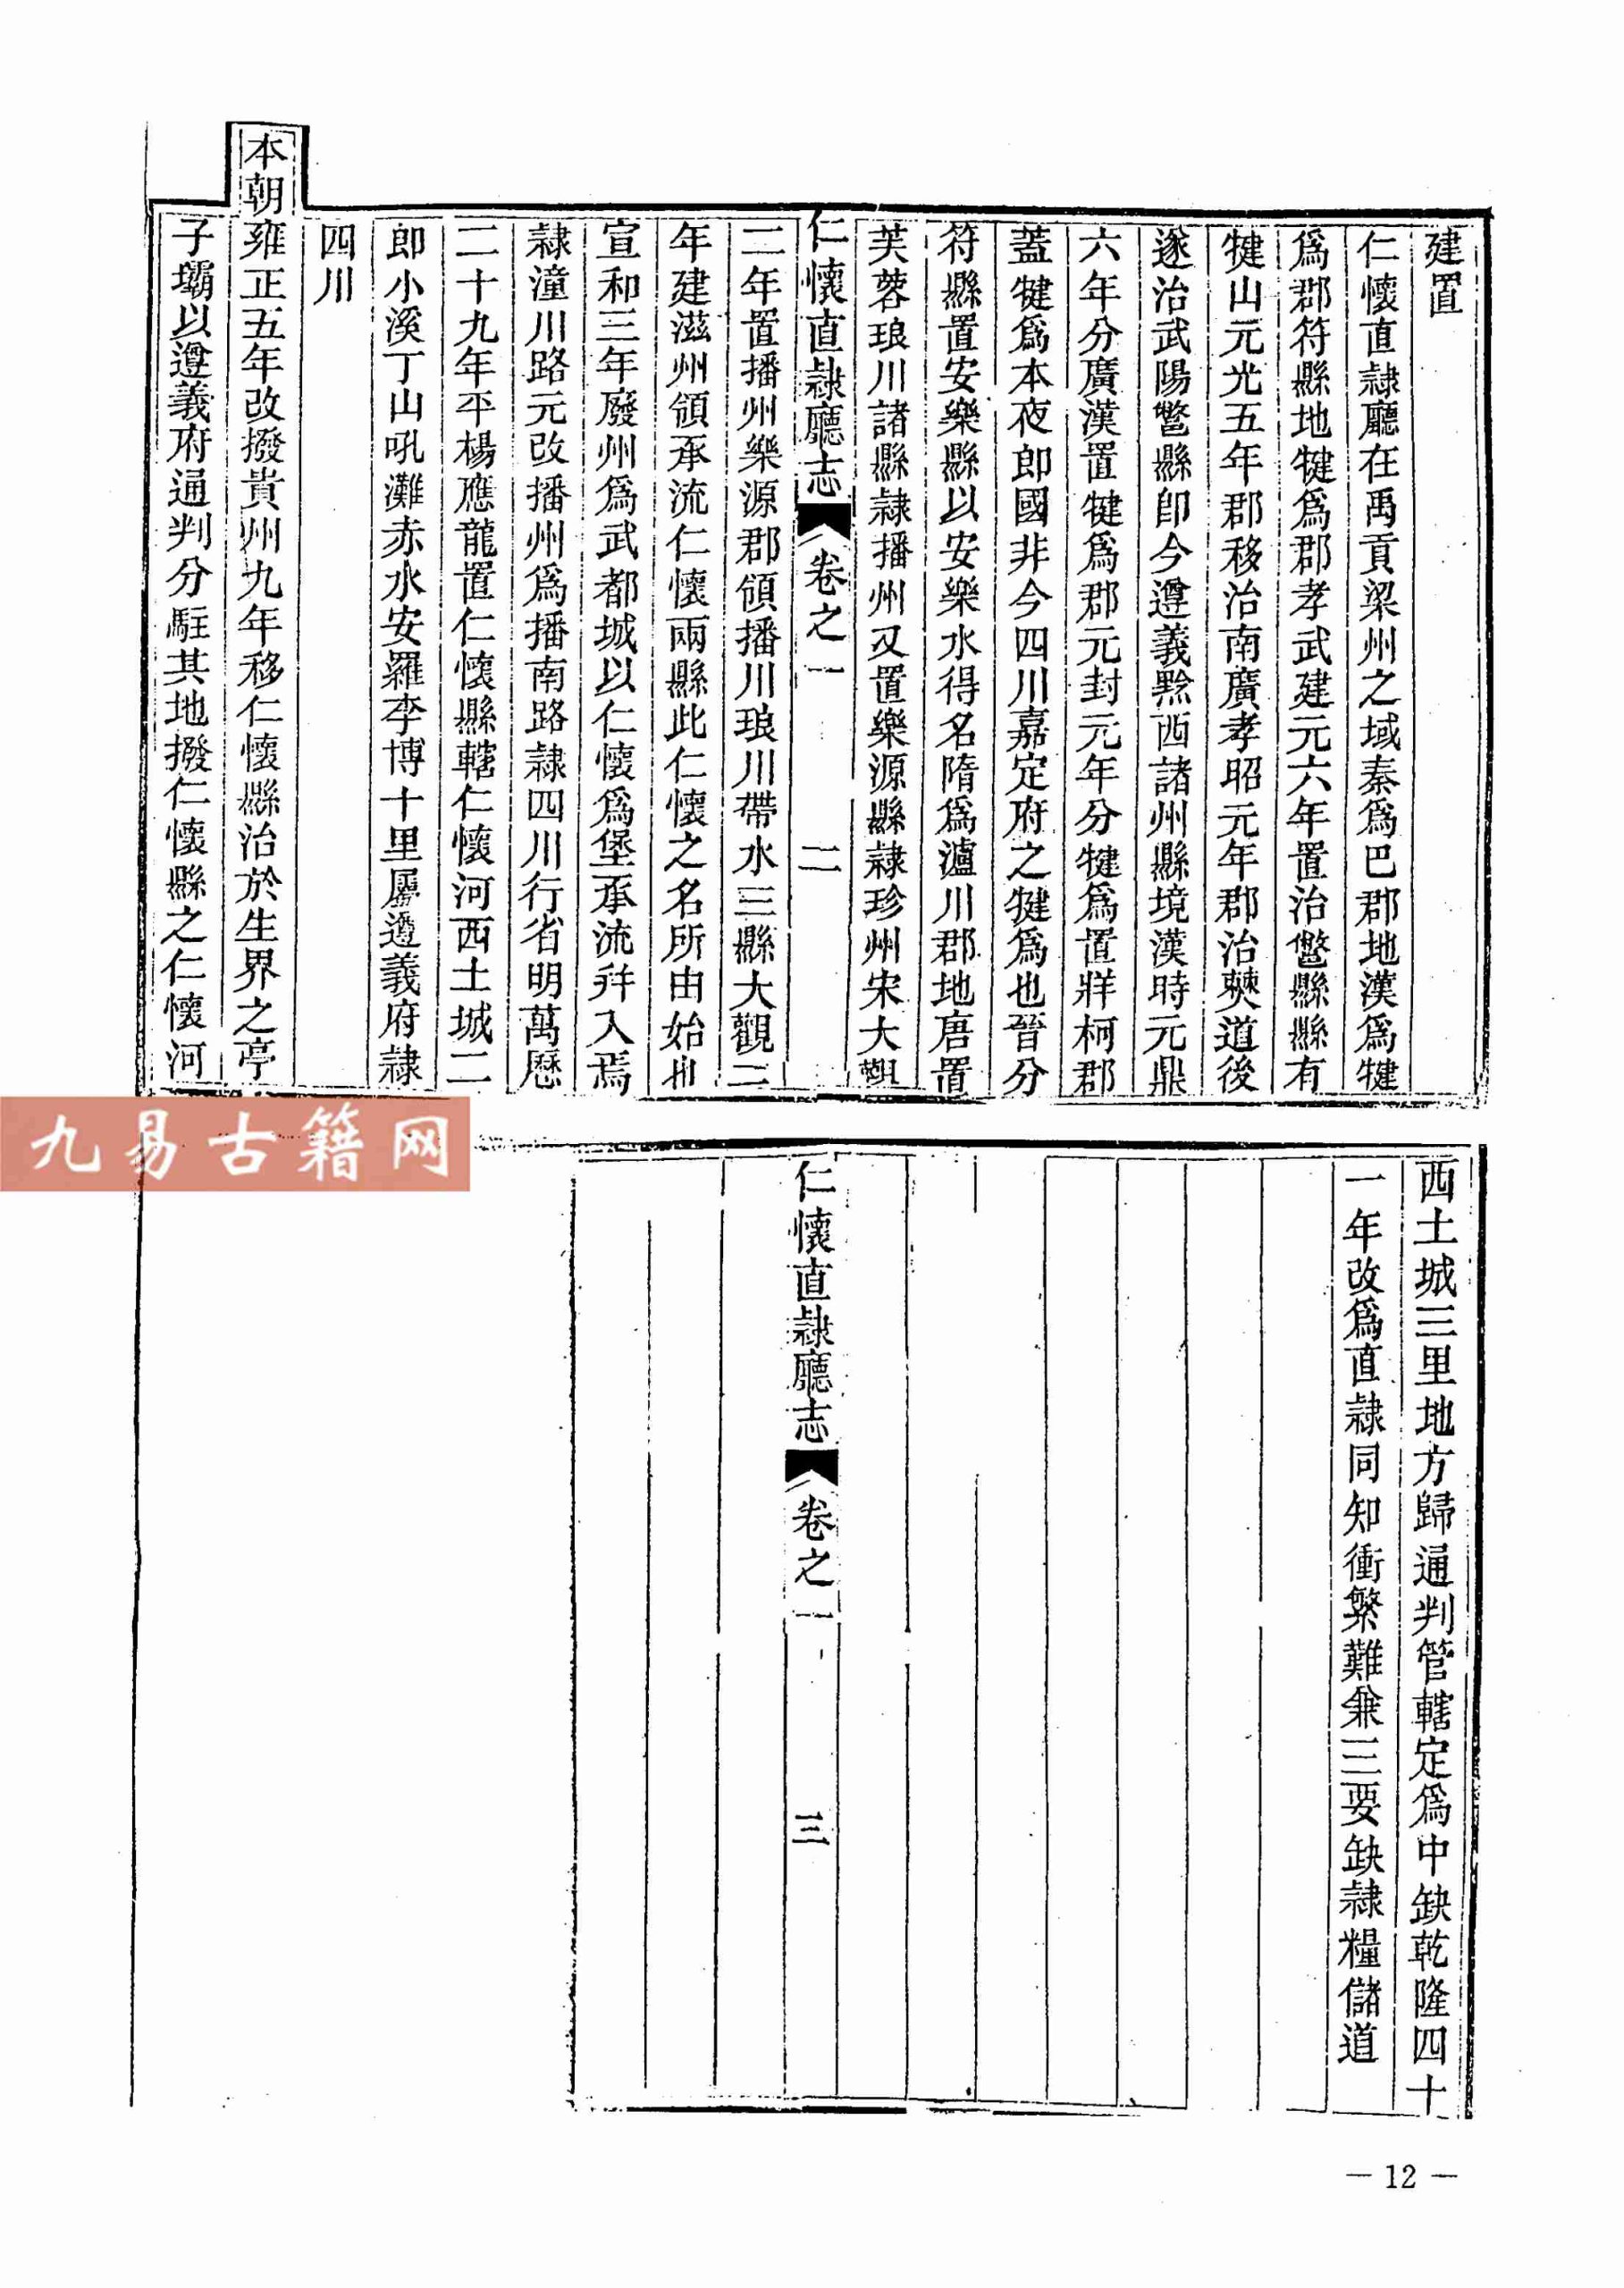 建置
仁懷直隸廳在禹貢梁州之域秦爲巴郡地漢爲犍
爲郡符縣地犍爲郡孝武建元六年置治鄨縣縣有
犍山元光五年郡移治南廣孝昭元年郡治僰道後
遂治武陽鄨縣卽今遵義黔西諸州縣境漢時元鼎
六年分廣漢置犍爲郡元封元年分犍爲置牂柯郡
蓋犍爲本夜郎國非今四川嘉定府之犍爲也晉分
符縣置安樂縣以安樂水得名隋爲瀘川郡地唐置
芙蓉琅川諸縣隸播州又置樂源縣隸珍州宋大觀
仁懷直隸廳志 卷之一 二
二年置播州樂源郡領播川琅川帶水三縣大觀三
年建滋州領承流仁懷兩縣此仁懷之名所由始也
宣和三年廢州爲武都城以仁懷爲堡承流幷入焉
隸潼川路元改播州爲播南路隸四川行省明萬歷
二十九年平楊應龍置仁懷縣轄仁懷河西土城二
郎小溪丁山吼灘赤水安羅李博十里屬遵義府隸
四川
本朝雍正五年改撥貴州九年移仁懷縣治於生界之亭
子壩以遵義府通判分駐其地撥仁懷縣之仁懷河
西土城三里地方歸通判管轄定爲中缺乾隆四十
一年改爲直隸同知衝繁難兼三要缺隸糧儲道
仁懷直隸廳志 卷之一 三
九易古籍网
— 12 —